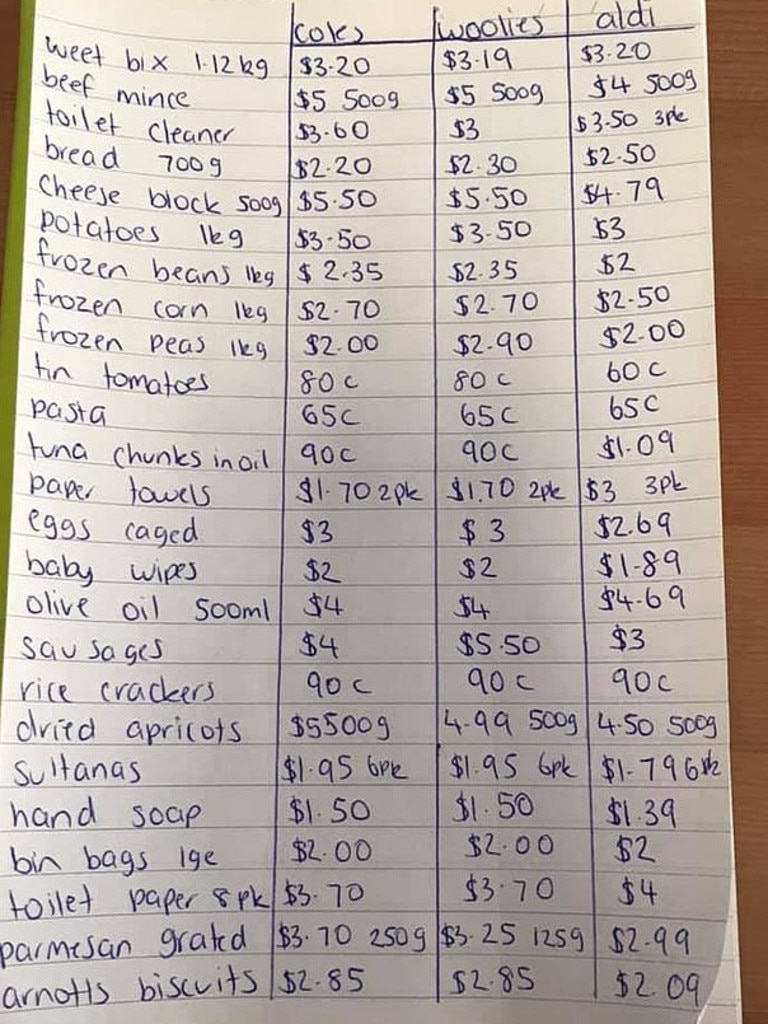 coles woolies aldi
weet bix 1.12kg $3.20 $3.19 $3.20
beef mince $5 500g $5 500g $4 500g
toilet cleaner $3.60 $3 $3.50 3pk
bread 700g $2.20 $2.30 $2.50
cheese block 500g $5.50 $5.50 $4.79
potatoes 1kg $3.50 $3.50 $3
frozen beans 1kg $2.35 $2.35 $2
frozen corn 1kg $2.70 $2.70 $2.50
frozen peas 1kg $2.00 $2.90 $2.00
tin tomatoes 80c 80c 60c
pasta 65c 65c 65c
tuna chunks in oil 90c 90c $1.09
paper towels $1.70 2pk $1.70 2pk $3 3pk
eggs caged $3 $3 $2.69
baby wipes $2 $2 $1.89
olive oil 500ml $4 $4 $4.69
sausages $4 $5.50 $3
rice crackers 90c 90c 90c
dried apricots $5 500g 4.99 500g 4.50 500g
sultanas $1.95 6pk $1.95 6pk $1.79 6pk
hand soap $1.50 $1.50 $1.39
bin bags lge $2.00 $2.00 $2
toilet paper 8pk $3.70 $3.70 $4
parmesan grated $3.70 250g $3.25 125g $2.99
arnotts biscuits $2.85 $2.85 $2.09